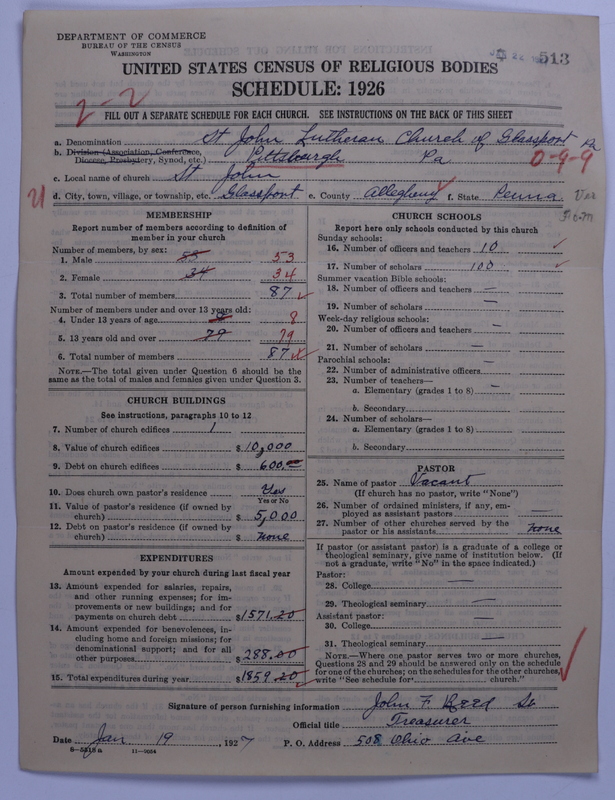 DEPARTMENT OF COMMERCE
BUREAU OF THE CENSUS
WASHINGTON
513
UNITED STATES CENSUS OF RELIGIOUS BODIES
SCHEDULE: 1926
2-2
FILL OUT A SEPARATE SCHEDULE FOR EACH CHURCH. SEE INSTRUCTIONS ON THE BACK OF THIS SHEET
a. Denomination St John Lutheran Church of Glassport Pa
b. Division (Association, Conference, Diocese, Presbytery, Synod, etc.) Pittsburgh Pa 0-4-9
c. Local name of church St John
d. City, town, village, or township, etc. Glassport e. County Allegheny f. State Penna
MEMBERSHIP
Report number of members according to definition of
member in your church
Number of members, by sex:
1. Male 53
2. Female 34 34
3. Total number of members 87
Number of members under and over 13 years old:
4. Under 13 years of age 8
5. 13 years old and over 79 79
6. Total number of members 87
NOTE.—The total given under Question 6 should be
same as the total of males and females given under Question 3.
CHURCH BUILDINGS
See instructions, paragraphs 10 to 12
7. Number of church edifices 1
8. Value of church edifices $ 10,000
9. Debt on church edifices $ 600.
10. Does church own pastor's residence Yes
Yes or No
11. Value of pastor's residence (if owned by
church) $ 5,000
12. Debt on pastor's residence (if owned by
church) $ none
EXPENDITURES
Amount expended by your church during last fiscal year
13. Amount expended for salaries, repairs,
and other running expenses; for im-
provements or new buildings; and for
payments on church debt $ 1571.20
14. Amount expended for benevolences, in-
cluding home and foreign missions; for
denominational support; and for all
other purposes $ 288.00
15. Total expenditures during year $ 1859.20
CHURCH SCHOOLS
Report here only schools conducted by this church
Sunday schools:
16. Number of officers and teachers 10
17. Number of scholars 100
Summer vacation Bible schools:
18. Number of officers and teachers —
19. Number of scholars —
Week-day religious schools:
20. Number of officers and teachers —
21. Number of scholars —
Parochial schools: —
22. Number of administrative officers
23. Number of teachers—
a. Elementary (grades 1 to 8) —
b. Secondary
24. Number of scholars—
a. Elementary (grades 1 to 8) —
b. Secondary
PASTOR
25. Name of pastor Vacant
(If church has no pastor, write "None")
26. Number of ordained ministers, if any, em-
ployed as assistant pastors —
27. Number of other churches served by the
pastor or his assistants none
If pastor (or assistant pastor) is a graduate of a college or
theological seminary, give name of institution below. (If
not a graduate, write "No" in the space indicated.)
Pastor:
28. College —
29. Theological seminary —
Assistant pastor:
30. College —
31. Theological seminary —
NOTE.—Where one pastor serves two or more churches,
Questions 28 and 29 should be answered only on the schedule
for one of the churches; on the schedules for the other churches,
write "See schedule for church."
Signature of person furnishing information John F Sr
Official title Treasurer
Date Jan 19, 1927 P. O. Address 508 Ohio Ave
11—5034